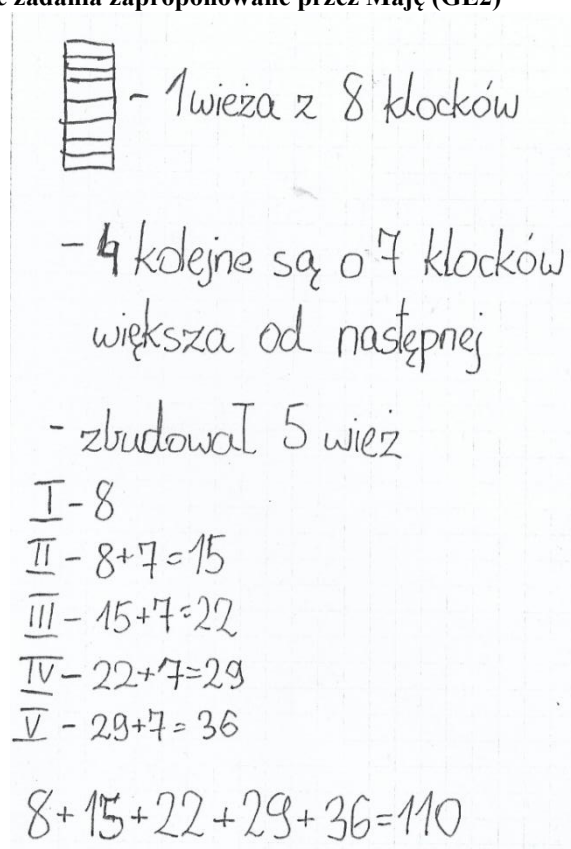 zadania zaproponowane przez Maję (GE2)
- 1 wieża z 8 klocków
- 4 kolejne są o 7 klocków
większa od następnej
- zbudował 5 wież
I - 8
II - 8+7=15
III - 15+7=22
IV - 22+7=29
V - 29+7=36
8+15+22+29+36=110